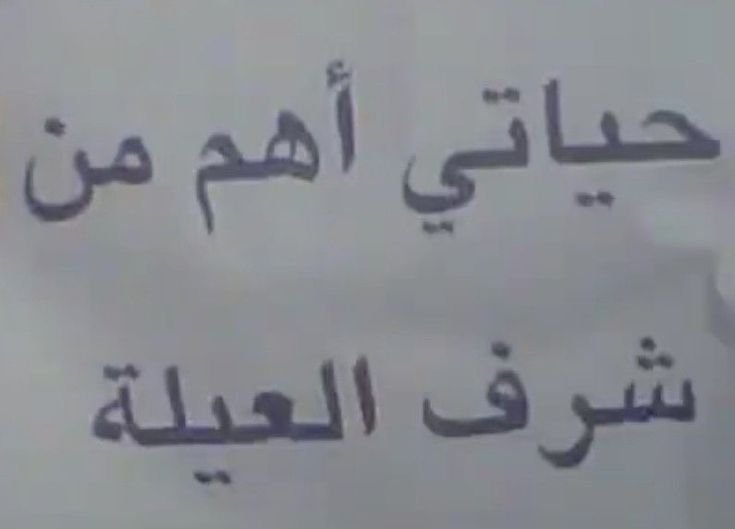 حياتي أهم من
شرف العيلة